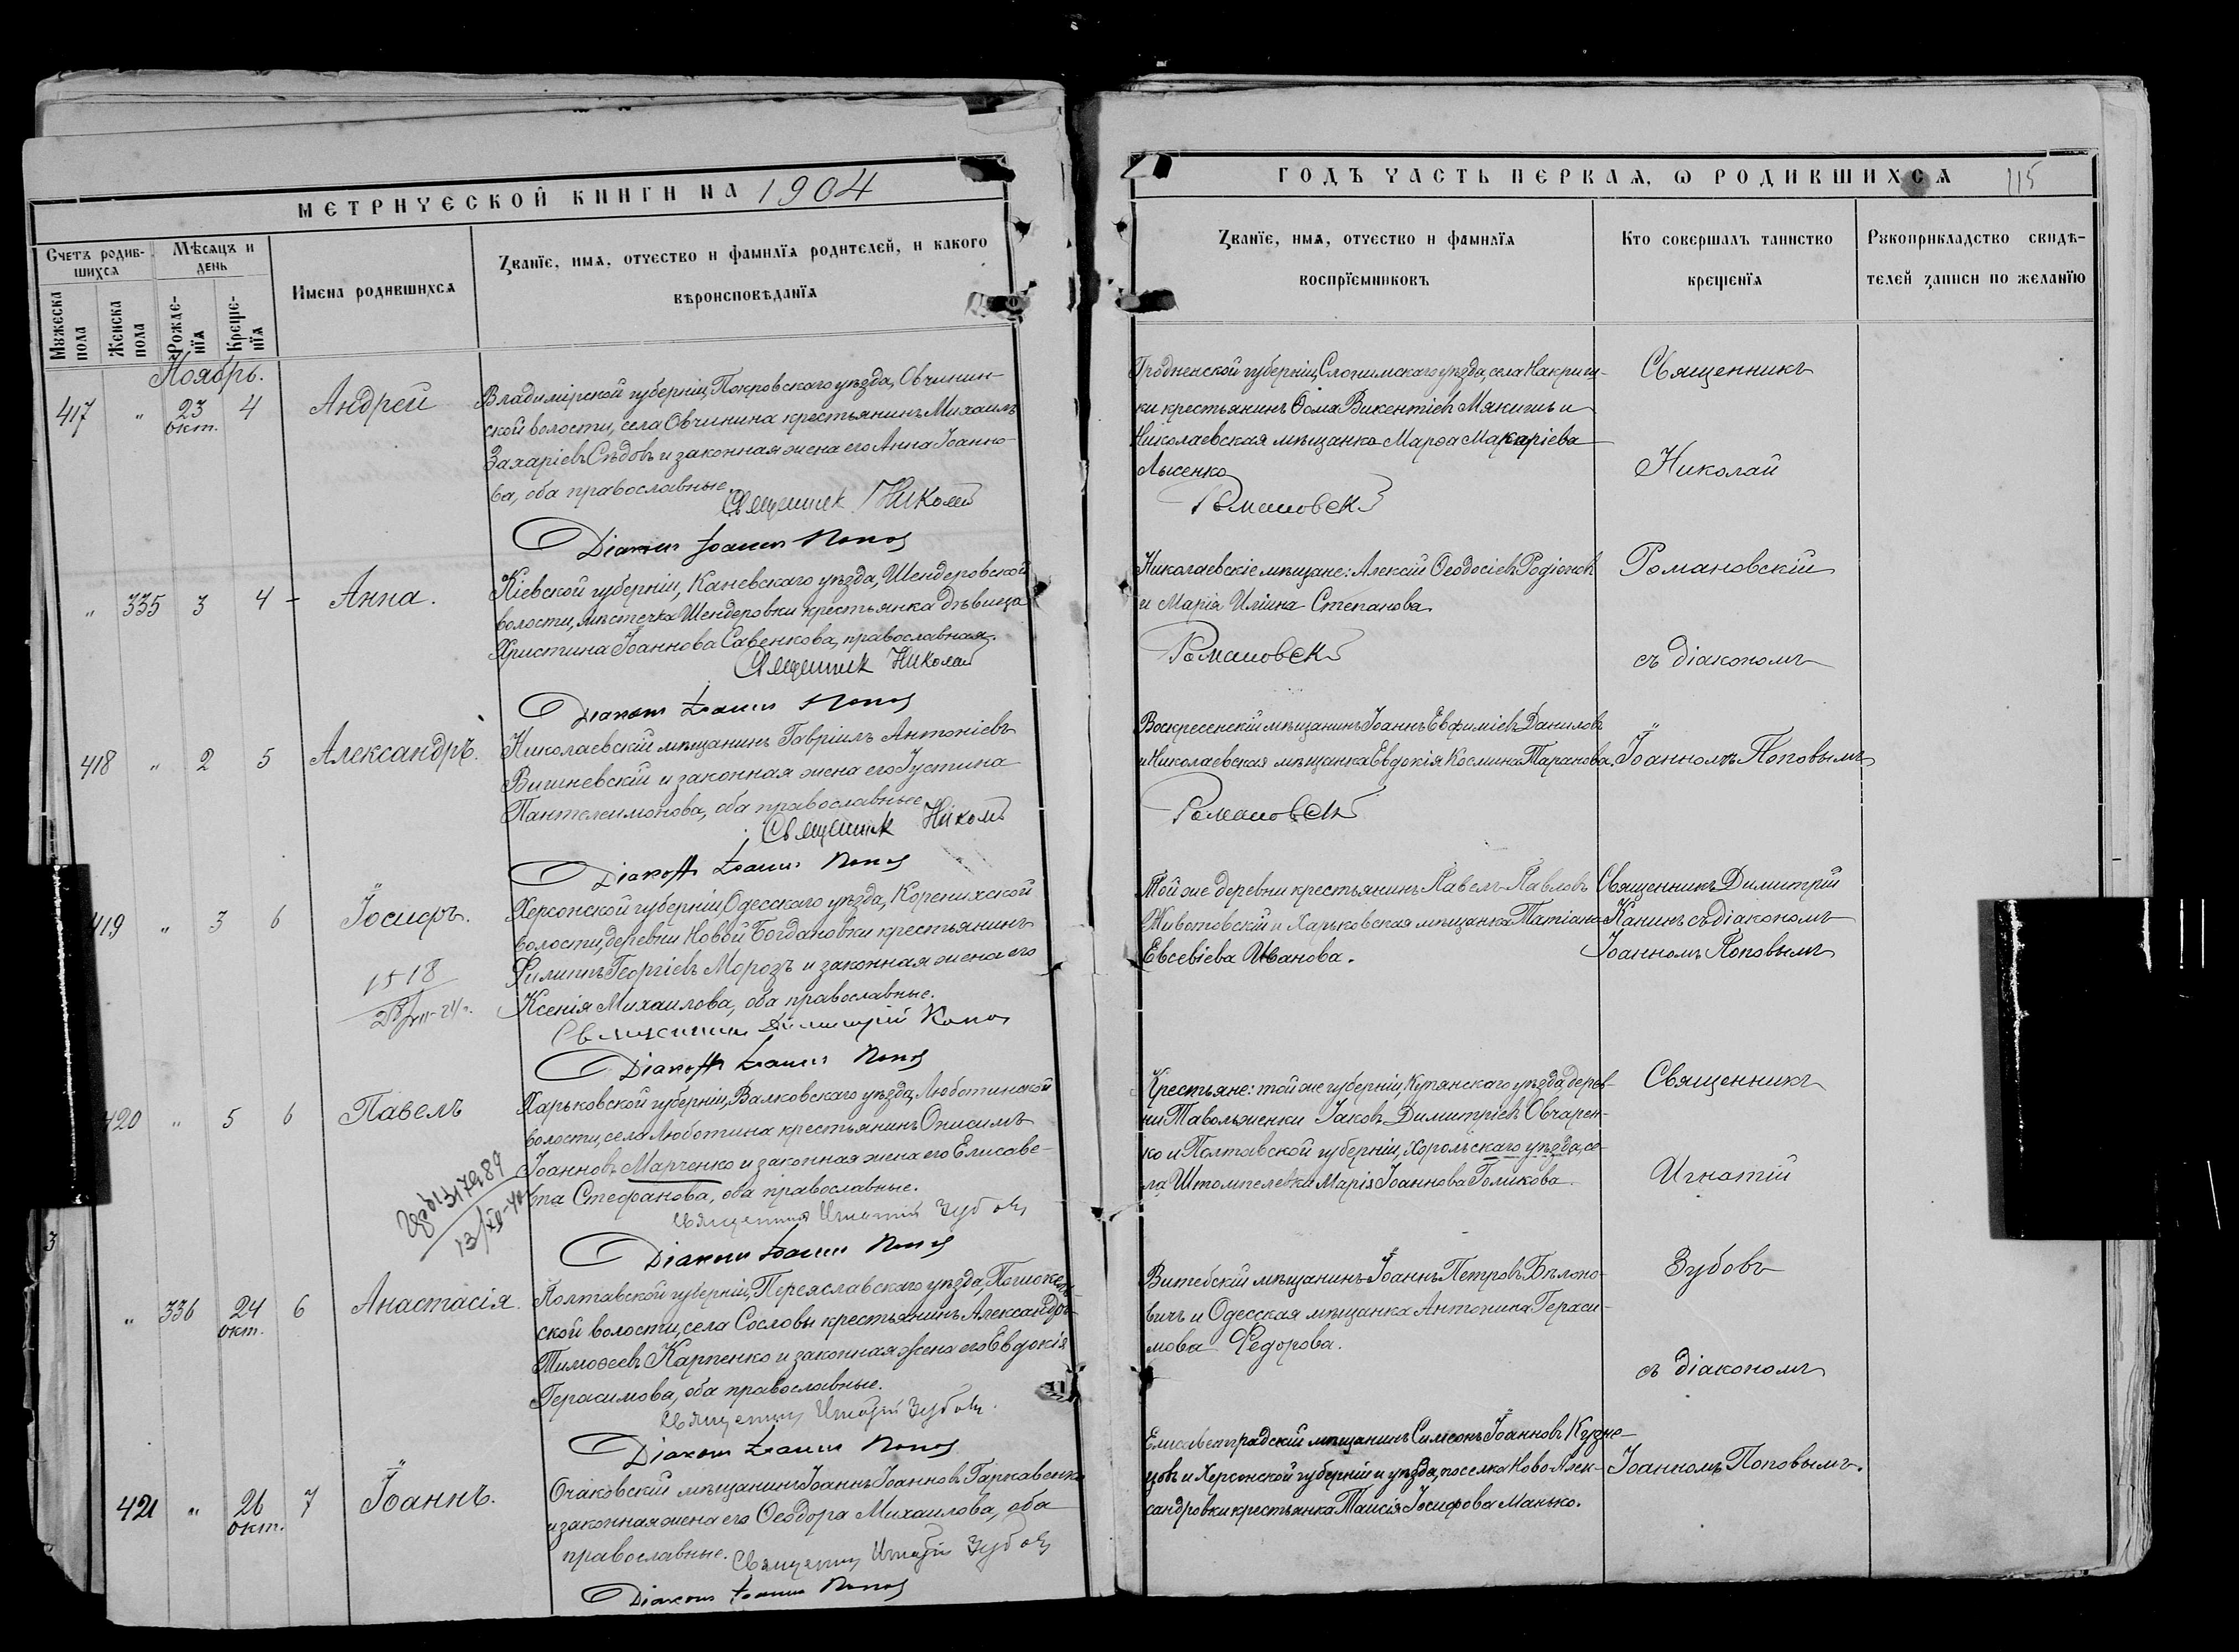 МЕТРИЧЕСКОЙ КНИГИ НА 1904
Счетъ родив-
шихся
Мѣсяцъ и
день
Мужеска
пола
Женска
пола
Рожде-
нія
Креще-
нія
Имена родившихся
Званіе, имя, отчество и фамилія родителей, и какого
вѣроисповѣданія
Ноябрь.
417 " 23 4 Андрей
окт.
Владимірской губерніи, Покровскаго уѣзда, Овчинин-
ской волости, села Овчинина крестьянинъ Михаилъ
Захаріевъ Сѣдовъ и законная жена его Анна Іоанно-
ва, оба православные
Священник Николай
Діаконъ Іоаннъ Попов
" 335 3 4 - Анна.
Кіевской губерніи, Каневскаго уѣзда, Шендеровской
волости, мѣстечка Шендеровки крестьянка дѣвица
Христина Іоаннова Савенкова, православная.
Священник Николай
Діаконъ Іоаннъ Попов
418 " 2 5 Александръ.
Николаевскій мѣщанинъ Гавріилъ Антоніевъ
Вишневскій и законная жена его Іустина
Пантелеимонова, оба православные
Священник Николай
Діаконъ Іоаннъ Попов
419 " 3 6 Іосифъ.
1518
Херсонской губерніи, Одесскаго уѣзда, Коренихской
волости, деревни Новой Богдановки крестьянинъ
Филиппъ Георгіевъ Морозъ и законная жена его
Ксенія Михаилова, оба православные.
Священникъ Димитрій Канин
Діаконъ Іоаннъ Попов
420 " 5 6 Павелъ
13/XII-40
Харьковской губерніи, Валковскаго уѣзда, Люботинской
волости, села Люботина крестьянинъ Онисимъ
Іоанновъ Марченко и законная жена его Елисаве-
та Стефанова, оба православные.
Священник Игнатій Зубовъ
Діаконъ Іоаннъ Попов
" 336 24 6 Анастасія.
окт.
Полтавской губерніи, Переяславскаго уѣзда,
ской волости, села Сословы крестьянинъ Александръ
Тимофеевъ Карпенко и законная жена его Евдокія
Герасимова, оба православные.
Священник Игнатій Зубовъ.
Діаконъ Іоаннъ Попов
421 " 26 7 Іоаннъ.
окт.
Очаковскій мѣщанинъ Іоаннъ Іоанновъ Гаркавенко
и законная жена его Ѳеодора Михаилова, оба
православные. Священник Игнатій Зубовъ
Діаконъ Іоаннъ Попов
ГОДЪ ЧАСТЬ ПЕРВАЯ, Ѡ РОДИВШИХСЯ 115
Званіе, имя, отчество и фамилія
воспріемниковъ
Кто совершалъ таинство
крещенія
Рукоприкладство свидѣ-
телей записи по желанію
Гродненской губерніи, Слонимскаго уѣзда, села Накриш-
ки крестьянинъ Ѳома Викентіевъ Мякишъ и
Николаевская мѣщанка Марѳа Макаріева
Лысенко
Романовскі
Николаевскіе мѣщане: Алексій Ѳеодосіевъ Родіоновъ
и Марія Иліина Степанова.
Романовскі
Воскресенскій мѣщанинъ Іоаннъ Евфиміевъ Даниловъ
и Николаевская мѣщанка Евдокія Космина Таранова.
Романовскі
Той же деревни крестьянинъ Павелъ Павловъ
Животовскій и Харьковская мѣщанка Татіана
Евсевіева Иванова.
Крестьяне: той же губерніи, Купянскаго уѣзда, дерев-
ни Таволженки Іаковъ Димитріевъ Овчарен-
ко и Полтавской губерніи, Хорольскаго уѣзда, се-
ла Штомпелевки Марія Іоаннова Голикова.
Витебскій мѣщанинъ Іоаннъ Петровъ Бѣлоно-
вичъ и Одесская мѣщанка Антонина Гераси-
мова Федорова.
Елисаветградскій мѣщанинъ Симеонъ Іоанновъ Кузне-
цовъ и Херсонской губерніи и уѣзда, поселка Ново-Алек-
сандровки крестьянка Таисія Іосифова Манько.
Священникъ
Николай
Романовскій
съ діакономъ
Іоанномъ Поповымъ
Священникъ Димитрій
Канинъ съ діакономъ
Іоанномъ Поповымъ
Священникъ
Игнатій
Зубовъ
съ діакономъ
Іоанномъ Поповымъ.